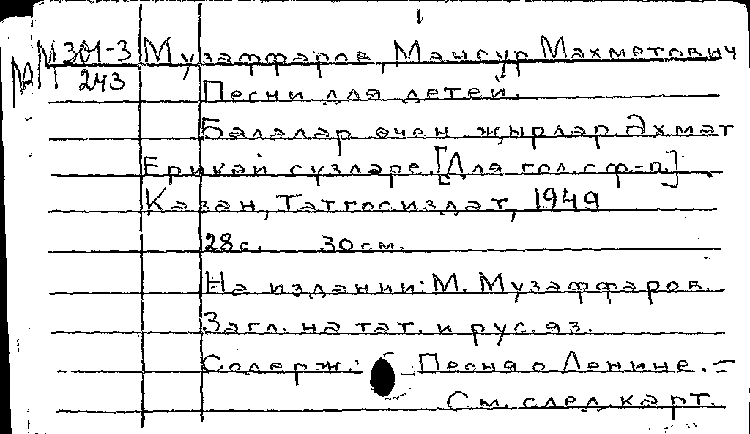 1
М 301-3 Музаффаров, Мансур Махметович
243 Песни для детей.
Балалар очен җырлар. Әхмәт
Ерикәй сүзләре. [Для гол. с ф-п.]
Казан, Татгосиздат, 1949
28 с. 30 см.
На издании: М. Музаффаров.
Загл. на тат. и рус. яз.
Содерж.: Песня о Ленине. –
См. след. карт.